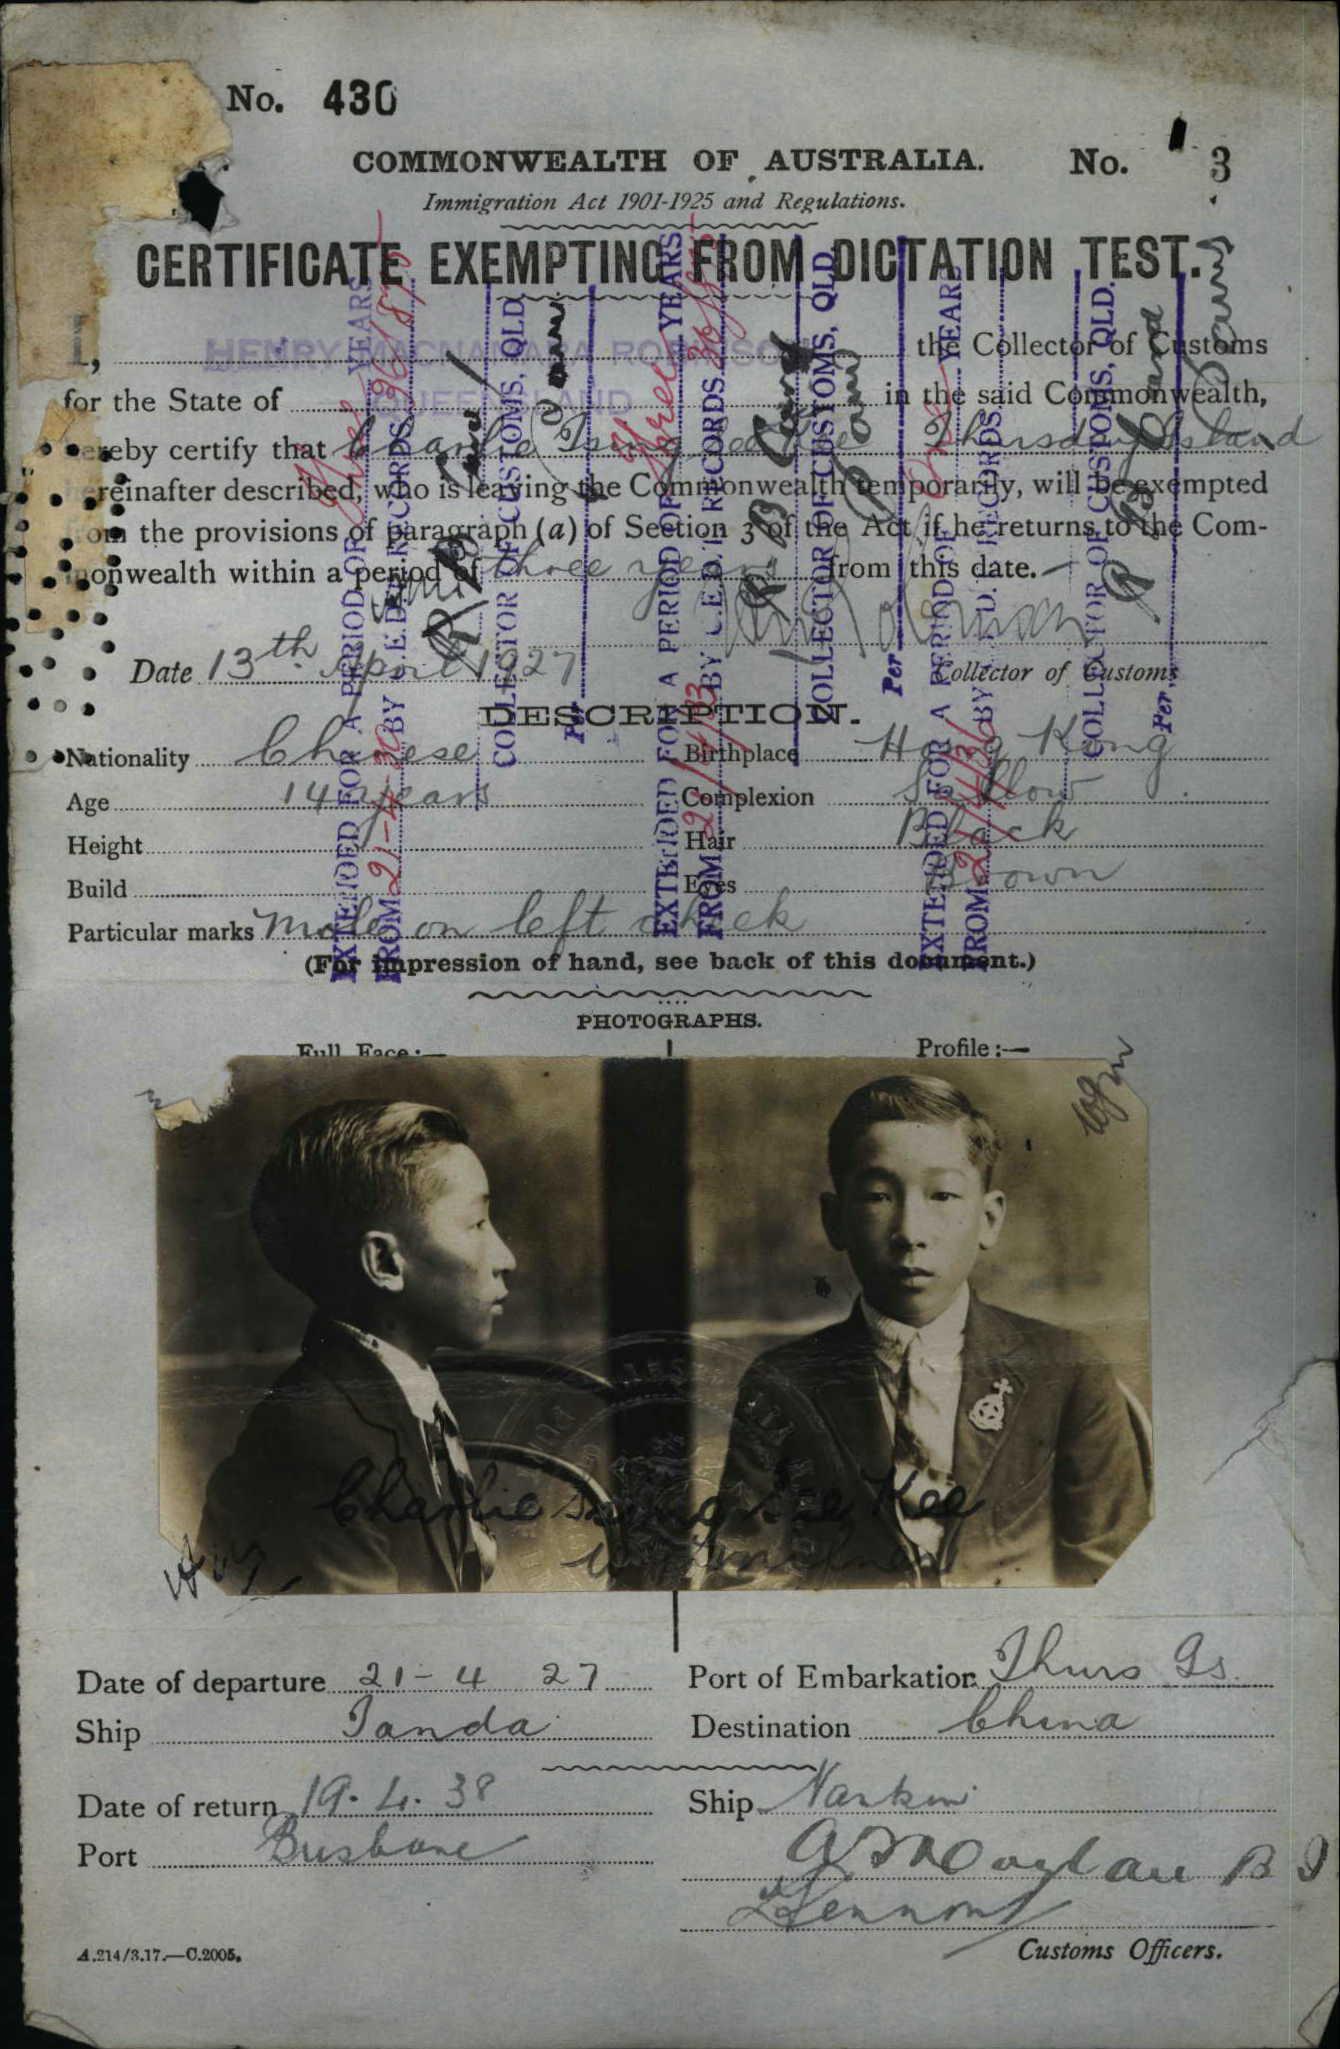 No. 430
COMMONWEALTH OF AUSTRALIA. No. 3
Immigration Act 1901-1925 and Regulations.
CERTIFICATE EXEMPTING FROM DICTATION TEST.
I, HENRY MACNAMARA ROBINSON the Collector of Customs
for the State of QUEENSLAND in the said Commonwealth,
hereby certify that Charlie Tsing See Kee Thursday Island
hereinafter described, who is leaving the Commonwealth temporarily, will be exempted
from the provisions of paragraph (a) of Section 3 of the Act if he returns to the Com-
monwealth within a period of three years from this date.
Date 13th April 1927
Collector of Customs
EXTENDED FOR A PERIOD OF three YEARS
FROM 21-4-30 BY C.E.D.T. RECORDS
COLLECTOR OF CUSTOMS, QLD
Per
EXTENDED FOR A PERIOD OF three YEARS
FROM 21/4/33 BY C.E.D.T. RECORDS
COLLECTOR OF CUSTOMS, QLD
Per
EXTENDED FOR A PERIOD OF One YEARS
FROM 21/4/36 BY C.E.D.T. RECORDS
COLLECTOR OF CUSTOMS, QLD.
Per
DESCRIPTION.
Nationality Chinese Birthplace Hong Kong
Age 14 years Complexion Sallow
Height Hair Black
Build Eyes Brown
Particular marks Mole on left cheek
(For impression of hand, see back of this document.)
PHOTOGRAPHS.
Full Face:— Profile:—
Charlie Tsing See Kee
Date of departure 21-4 27 Port of Embarkation Thurs Is.
Ship Tanda Destination China
Date of return 19.4.38 Ship Nankin
Port Brisbane
Customs Officers.
A.214/3.17.—C.2005.